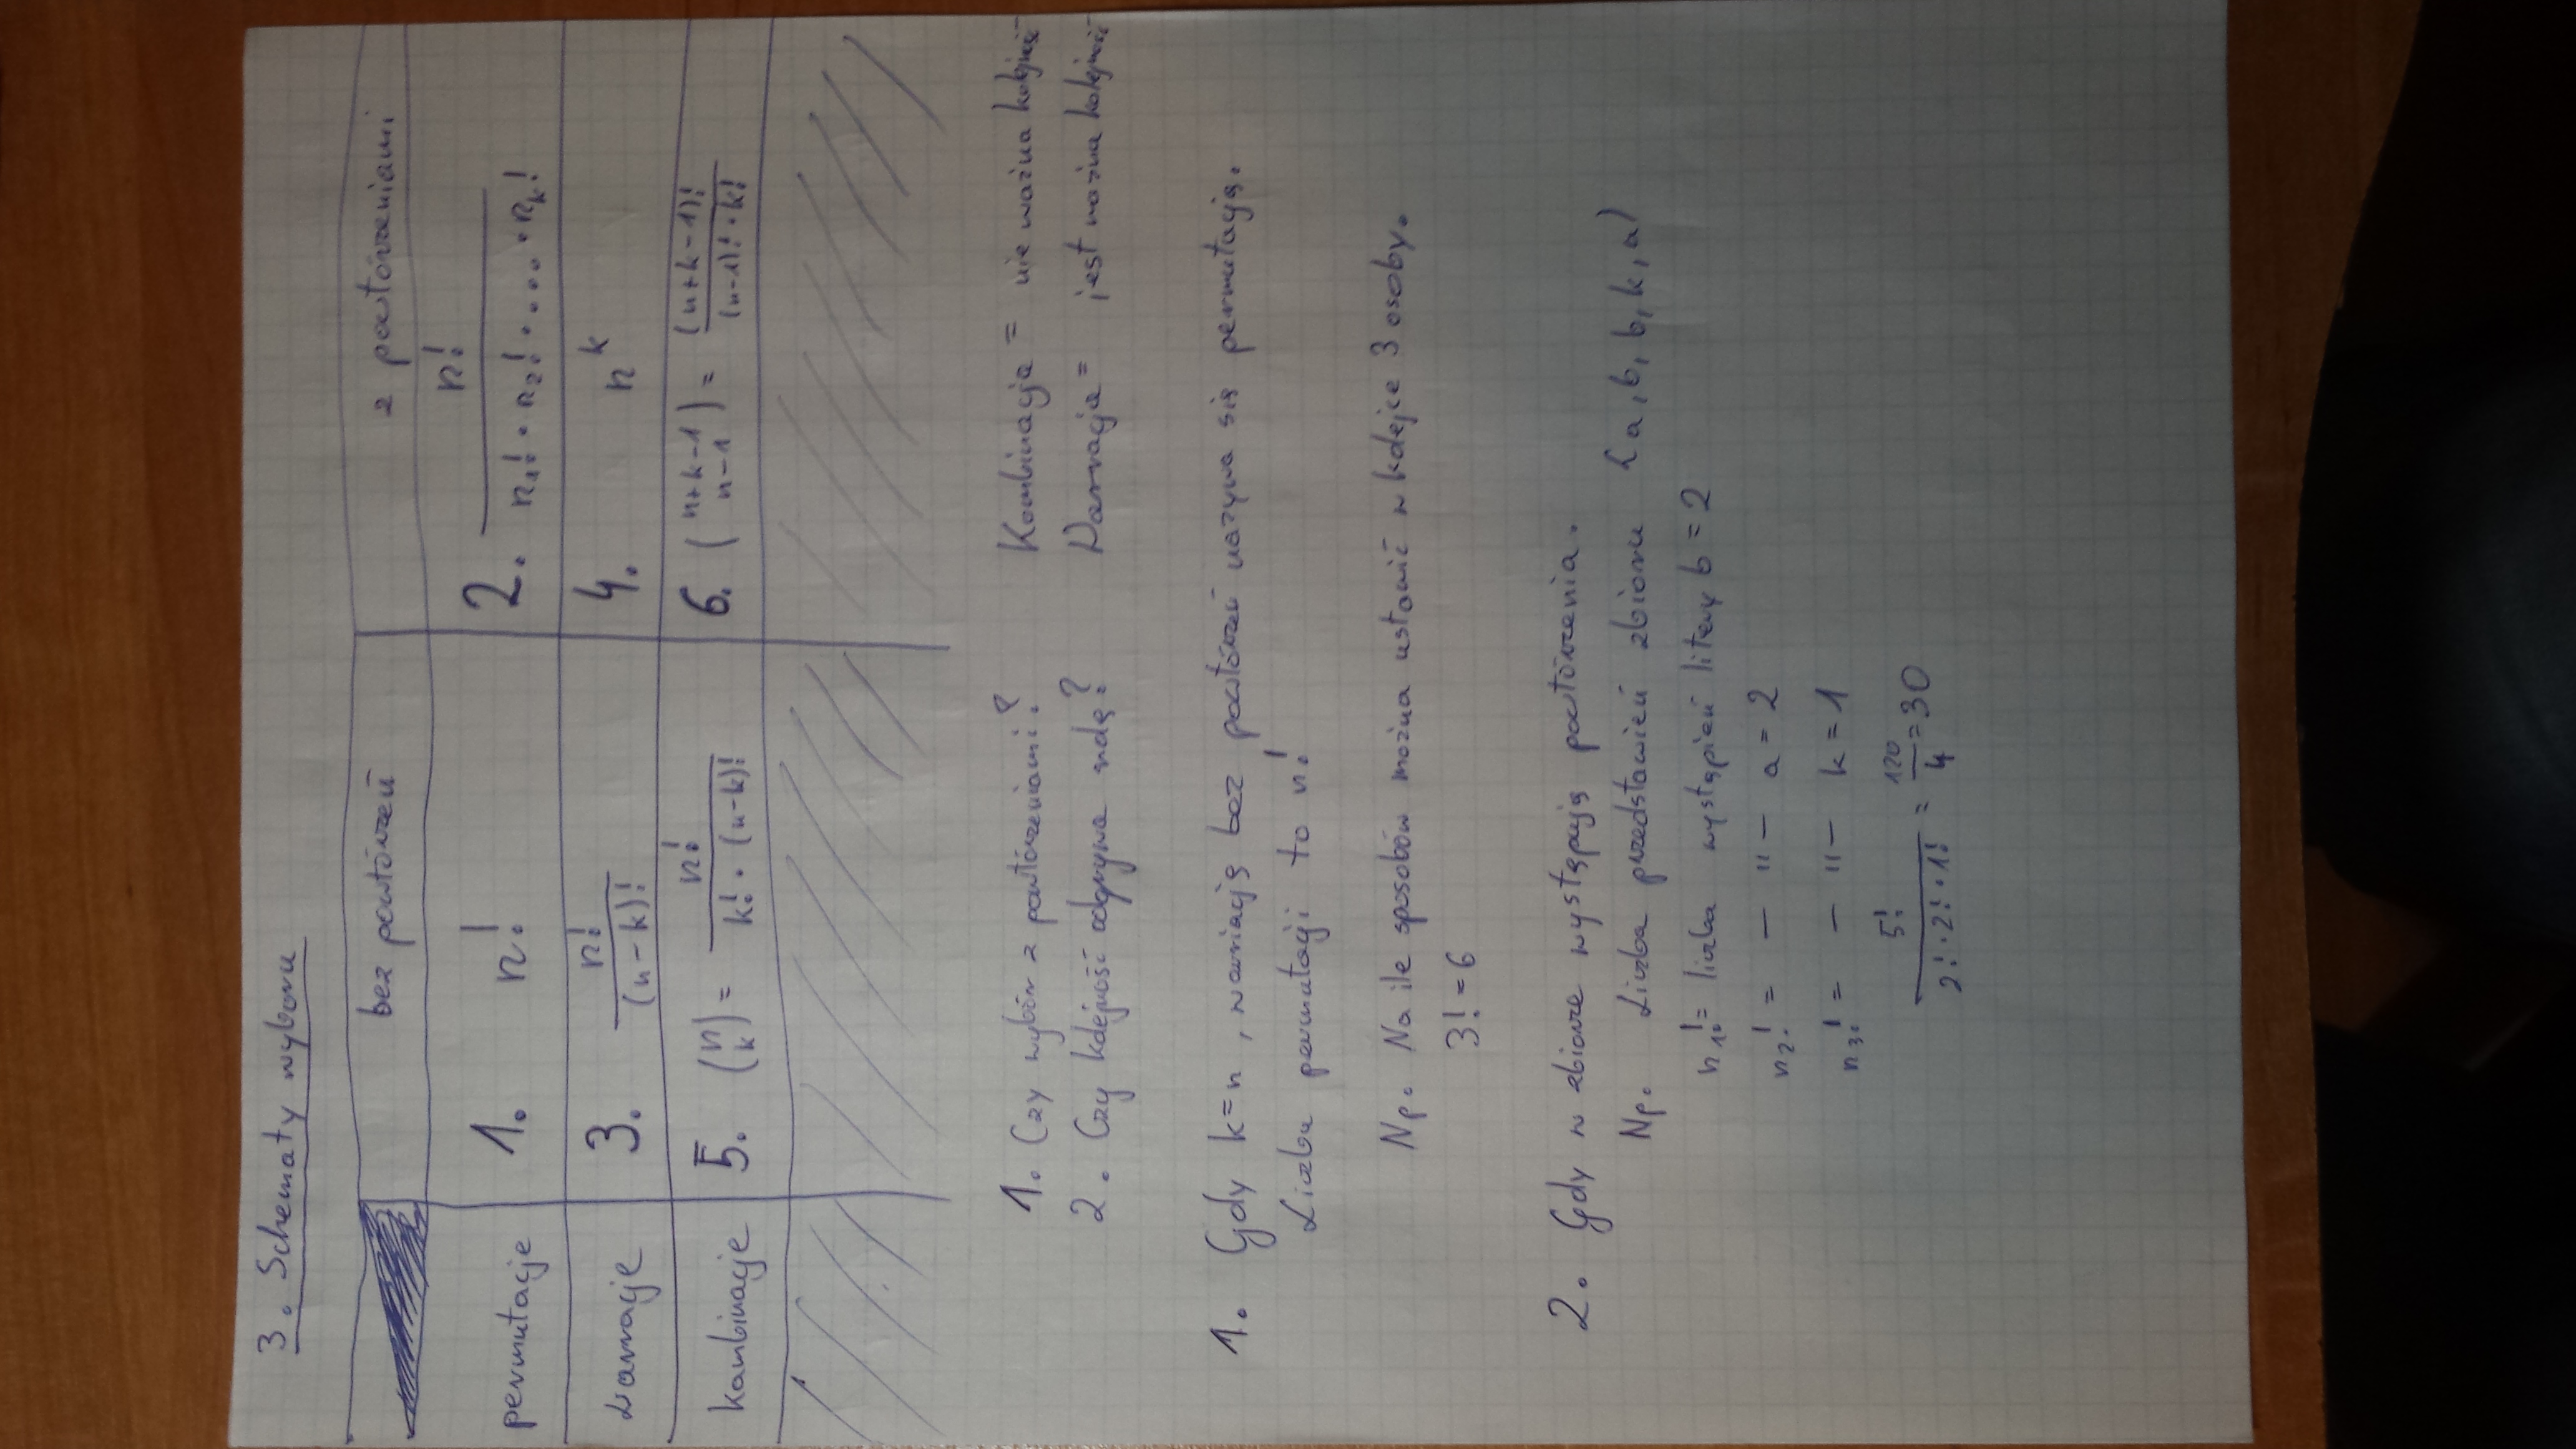 3. Schematy wyboru
bez powtórzeń z powtórzeniami
permutacje 1. n! 2. n! / (n₁! · n₂! · .... · nₖ!)
wariacje 3. n! / (n-k)! 4. n^k
kombinacje 5. (n k) = n! / (k! · (n-k)!) 6. (n+k-1 n-1) = (n+k-1)! / ((n-1)! · k!)
1. Czy wybór z powtórzeniami? Kombinacja = nie ważna kolejność
2. Czy kolejność odgrywa rolę? Wariacja = jest ważna kolejność
1. Gdy k=n, wariację bez powtórzeń nazywa się permutacją.
Liczba permutacji to n!
Np. Na ile sposobów można ustawić w kolejce 3 osoby.
3! = 6
2. Gdy w zbiorze występują powtórzenia.
Np. Liczba przedstawień zbioru {a, b, b, k, a}
n₁! = liczba wystąpień litery b = 2
n₂! = — " — a = 2
n₃! = — " — k = 1
5! / (2! · 2! · 1!) = 120/4 = 30